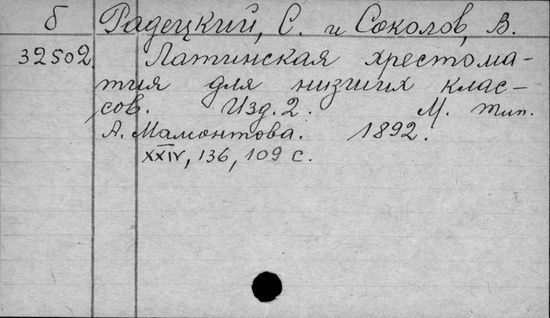 б Радецкий, С. и Соколов, В.
32502 Латинская хрестома-
тия для низших клас-
сов. Изд. 2. М. тип.
А. Мамонтова. 1892.
XXIV, 136, 109 с.